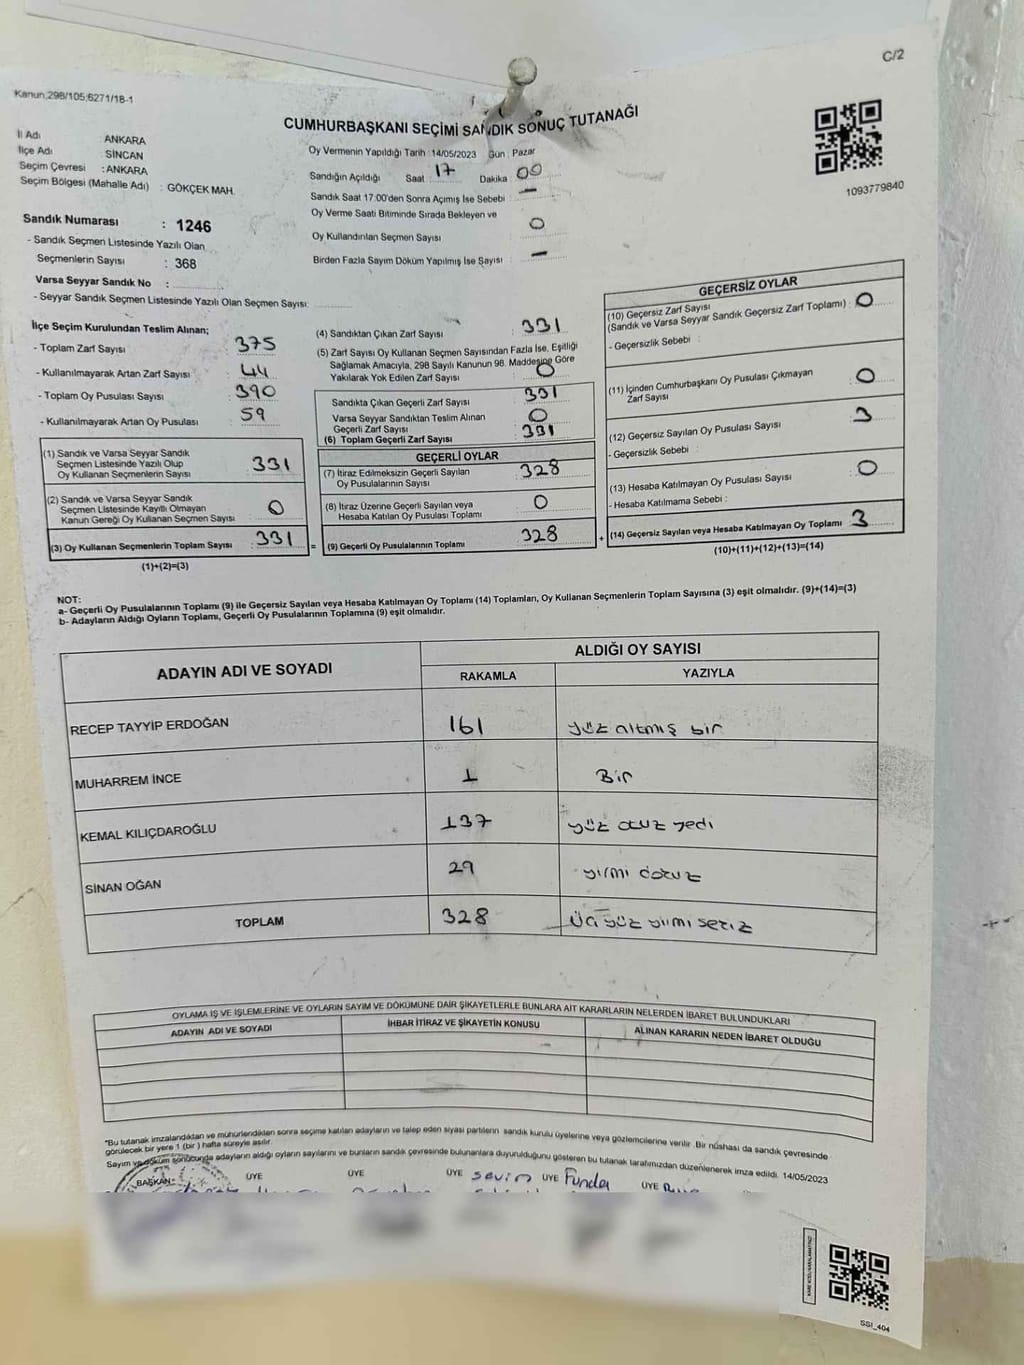 C/2
Kanun;298/105;6271/18-1
CUMHURBAŞKANI SEÇİMİ SANDIK SONUÇ TUTANAĞI
1093779840
İl Adı ANKARA
İlçe Adı SİNCAN
Seçim Çevresi : ANKARA
Seçim Bölgesi (Mahalle Adı) : GÖKÇEK MAH.
Oy Vermenin Yapıldığı Tarih : 14/05/2023 Gün : Pazar
Sandığın Açıldığı Saat 17 Dakika 00
Sandık Saat 17:00'den Sonra Açımış İse Sebebi : —
Oy Verme Saati Bitiminde Sırada Bekleyen ve
Oy Kullandırılan Seçmen Sayısı 0
Birden Fazla Sayım Döküm Yapılmış İse Sayısı : —
Sandık Numarası : 1246
- Sandık Seçmen Listesinde Yazılı Olan
Seçmenlerin Sayısı : 368
Varsa Seyyar Sandık No :
- Seyyar Sandık Seçmen Listesinde Yazılı Olan Seçmen Sayısı:
İlçe Seçim Kurulundan Teslim Alınan;
- Toplam Zarf Sayısı : 375
- Kullanılmayarak Artan Zarf Sayısı : 44
- Toplam Oy Pusulası Sayısı : 390
- Kullanılmayarak Artan Oy Pusulası : 59
(1) Sandık ve Varsa Seyyar Sandık
Seçmen Listesinde Yazılı Olup
Oy Kullanan Seçmenlerin Sayısı : 331
(2) Sandık ve Varsa Seyyar Sandık
Seçmen Listesinde Kayıtlı Olmayan
Kanun Gereği Oy Kullanan Seçmen Sayısı : 0
(3) Oy Kullanan Seçmenlerin Toplam Sayısı : 331
(1)+(2)=(3)
=
(4) Sandıktan Çıkan Zarf Sayısı : 331
(5) Zarf Sayısı Oy Kullanan Seçmen Sayısından Fazla İse, Eşitliği
Sağlamak Amacıyla, 298 Sayılı Kanunun 98. Maddesine Göre
Yakılarak Yok Edilen Zarf Sayısı : 0
Sandıkta Çıkan Geçerli Zarf Sayısı : 331
Varsa Seyyar Sandıktan Teslim Alınan
Geçerli Zarf Sayısı : 0
(6) Toplam Geçerli Zarf Sayısı : 331
GEÇERLİ OYLAR
(7) İtiraz Edilmeksizin Geçerli Sayılan
Oy Pusulalarının Sayısı : 328
(8) İtiraz Üzerine Geçerli Sayılan veya
Hesaba Katılan Oy Pusulası Toplamı : 0
(9) Geçerli Oy Pusulalarının Toplamı : 328
+
GEÇERSİZ OYLAR
(10) Geçersiz Zarf Sayısı
(Sandık ve Varsa Seyyar Sandık Geçersiz Zarf Toplamı) : 0
- Geçersizlik Sebebi :
(11) İçinden Cumhurbaşkanı Oy Pusulası Çıkmayan
Zarf Sayısı : 0
(12) Geçersiz Sayılan Oy Pusulası Sayısı : 3
- Geçersizlik Sebebi :
(13) Hesaba Katılmayan Oy Pusulası Sayısı : 0
- Hesaba Katılmama Sebebi :
(14) Geçersiz Sayılan veya Hesaba Katılmayan Oy Toplamı : 3
(10)+(11)+(12)+(13)=(14)
NOT:
a- Geçerli Oy Pusulalarının Toplamı (9) ile Geçersiz Sayılan veya Hesaba Katılmayan Oy Toplamı (14) Toplamları, Oy Kullanan Seçmenlerin Toplam Sayısına (3) eşit olmalıdır. (9)+(14)=(3)
b- Adayların Aldığı Oyların Toplamı, Geçerli Oy Pusulalarının Toplamına (9) eşit olmalıdır.
ADAYIN ADI VE SOYADI ALDIĞI OY SAYISI
RAKAMLA YAZIYLA
RECEP TAYYİP ERDOĞAN 161 yüz altmış bir
MUHARREM İNCE 1 Bir
KEMAL KILIÇDAROĞLU 137 yüz otuz yedi
SİNAN OĞAN 29 yirmi dokuz
TOPLAM 328 üç yüz yirmi sekiz
OYLAMA İŞ VE İŞLEMLERİNE VE OYLARIN SAYIM VE DÖKÜMÜNE DAİR ŞİKAYETLERLE BUNLARA AİT KARARLARIN NELERDEN İBARET BULUNDUKLARI
ADAYIN ADI VE SOYADI İHBAR İTİRAZ VE ŞİKAYETİN KONUSU ALINAN KARARIN NEDEN İBARET OLDUĞU
*Bu tutanak imzalandıktan ve mühürlendikten sonra seçime katılan adayların ve talep eden siyasi partilerin sandık kurulu üyelerine veya gözlemcilerine verilir. Bir nüshası da sandık çevresinde
görülecek bir yere 1 (bir) hafta süreyle asılır.
Sayım ve döküm sonucunda adayların aldığı oyların sayılarını ve bunların sandık çevresinde bulunanlara duyurulduğunu gösteren bu tutanak tarafımızdan düzenlenerek imza edildi. 14/05/2023
BAŞKAN ÜYE ÜYE ÜYE Sevim ÜYE Funda ÜYE
SSI_404